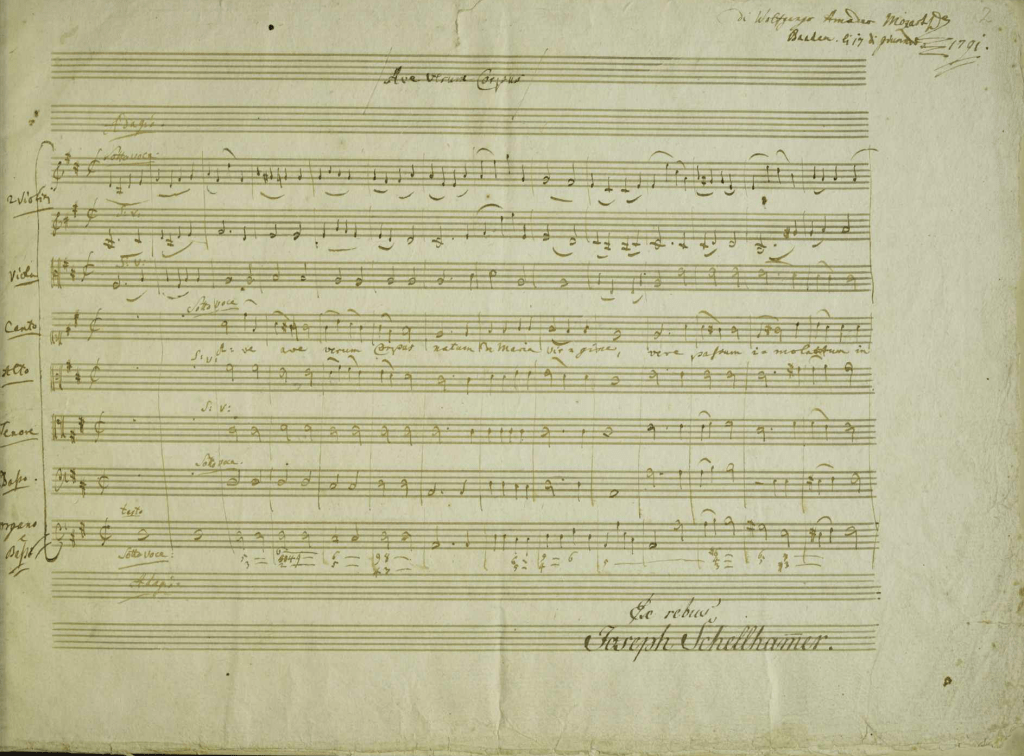 2
di Wolfgango Amadeo Mozart
Baden. li 17 di giunio 1791.
Ave verum Corpus
Adagio.
Sotto voce.
2 Violini
S: v:
Viola
S: v:
Sotto voce
Canto
A: ve ave verum Corpus natum de Maria virgine, vere passum immolatum in
S: v:
Alto
S: v:
Tenore
Sotto voce.
Basso.
tasto
Organo
e
Basso
Sotto voce:
Adagio.
Ex rebus
Joseph Schellham̄er.